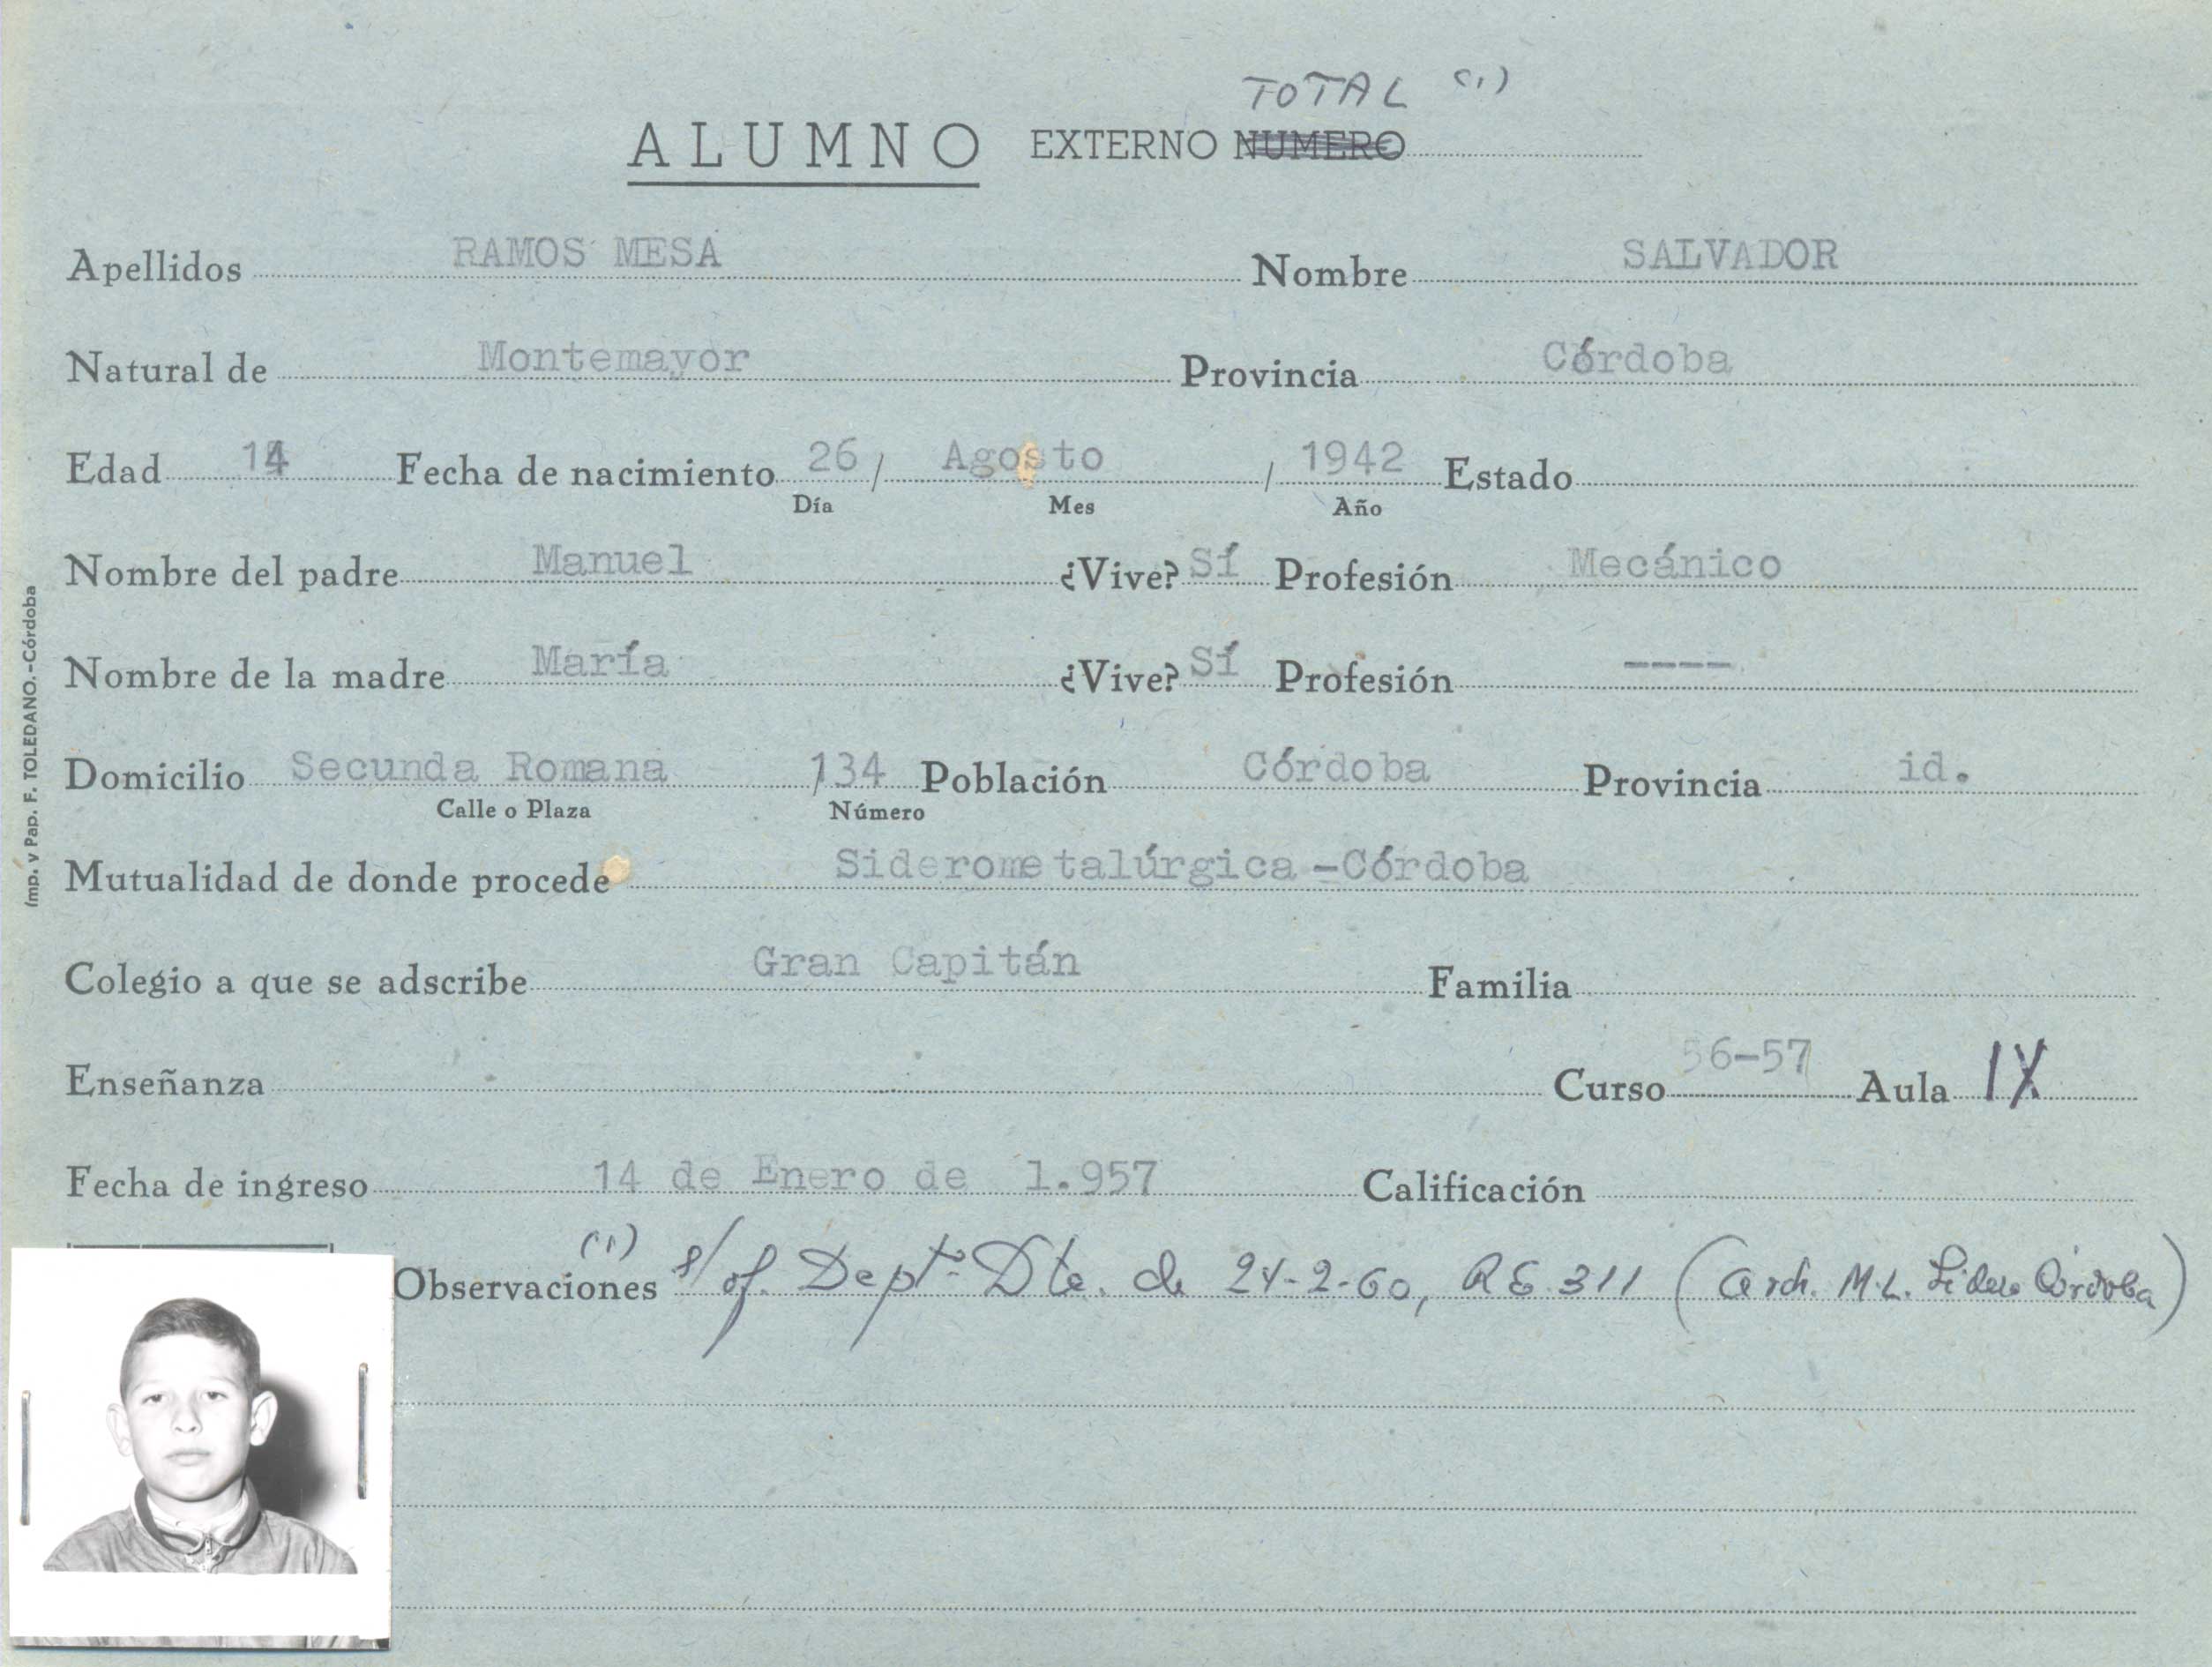 TOTAL (1)
ALUMNO EXTERNO NUMERO
Apellidos RAMOS MESA Nombre SALVADOR
Natural de Montemayor Provincia Córdoba
Edad 14 Fecha de nacimiento 26 / Agosto / 1942 Estado
Día Mes Año
Nombre del padre Manuel ¿Vive? Sí Profesión Mecánico
Nombre de la madre María ¿Vive? Sí Profesión ----
Domicilio Secunda Romana 134 Población Córdoba Provincia id.
Calle o Plaza Número
Mutualidad de donde procede Siderometalúrgica-Córdoba
Colegio a que se adscribe Gran Capitán Familia
Enseñanza Curso 56-57 Aula IX
Fecha de ingreso 14 de Enero de 1.957 Calificación
Observaciones (1) s/of. Deptº Dte. de 24-2-60, RE 311 (Arch. M.L. Córdoba)
Imp. y Pap. F. TOLEDANO.-Córdoba